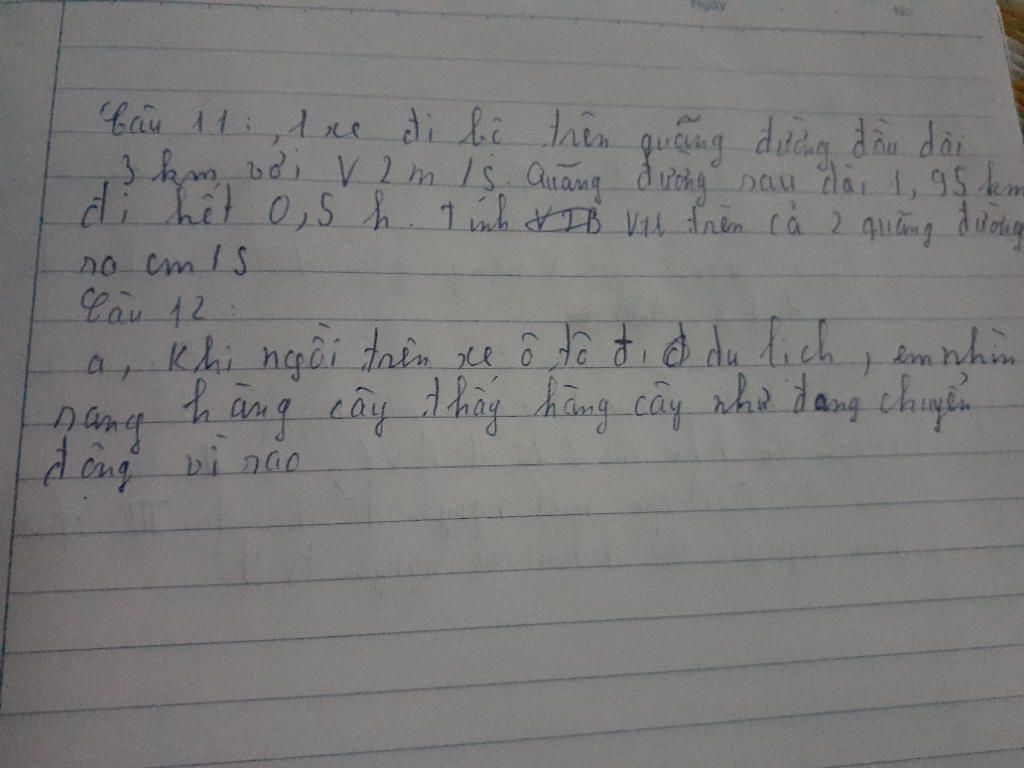 Ngày No.
Câu 11: , 1 xe đi bộ trên quãng đường đầu dài
3 km với V 2 m/s. Quãng đường sau dài 1,95 km
đi hết 0,5 h. Tính VTB trên cả 2 quãng đường
ra cm/s
Câu 12:
a, Khi ngồi trên xe ô tô đi du lịch, em nhìn
sang hàng cây thấy hàng cây như đang chuyển
động vì sao